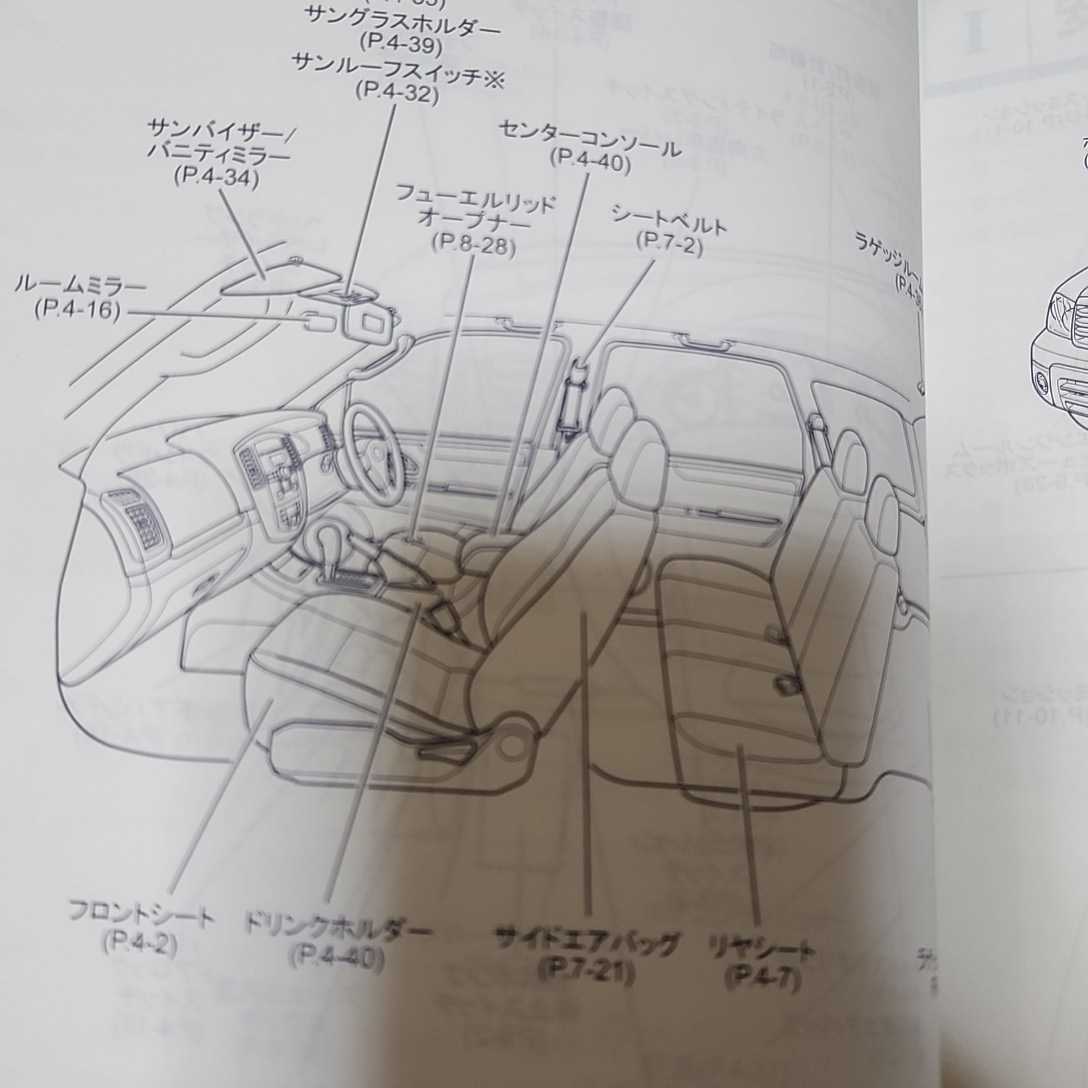 サングラスホルダー
(P.4-39)
サンルーフスイッチ※
(P.4-32)
サンバイザー/
バニティミラー
(P.4-34)
センターコンソール
(P.4-40)
フューエルリッド
オープナー
(P.8-28)
シートベルト
(P.7-2)
ルームミラー
(P.4-16)
ラゲッジルー
(P.4-
フロントシート
(P.4-2)
ドリンクホルダー
(P.4-40)
サイドエアバッグ
(P.7-21)
リヤシート
(P.4-7)